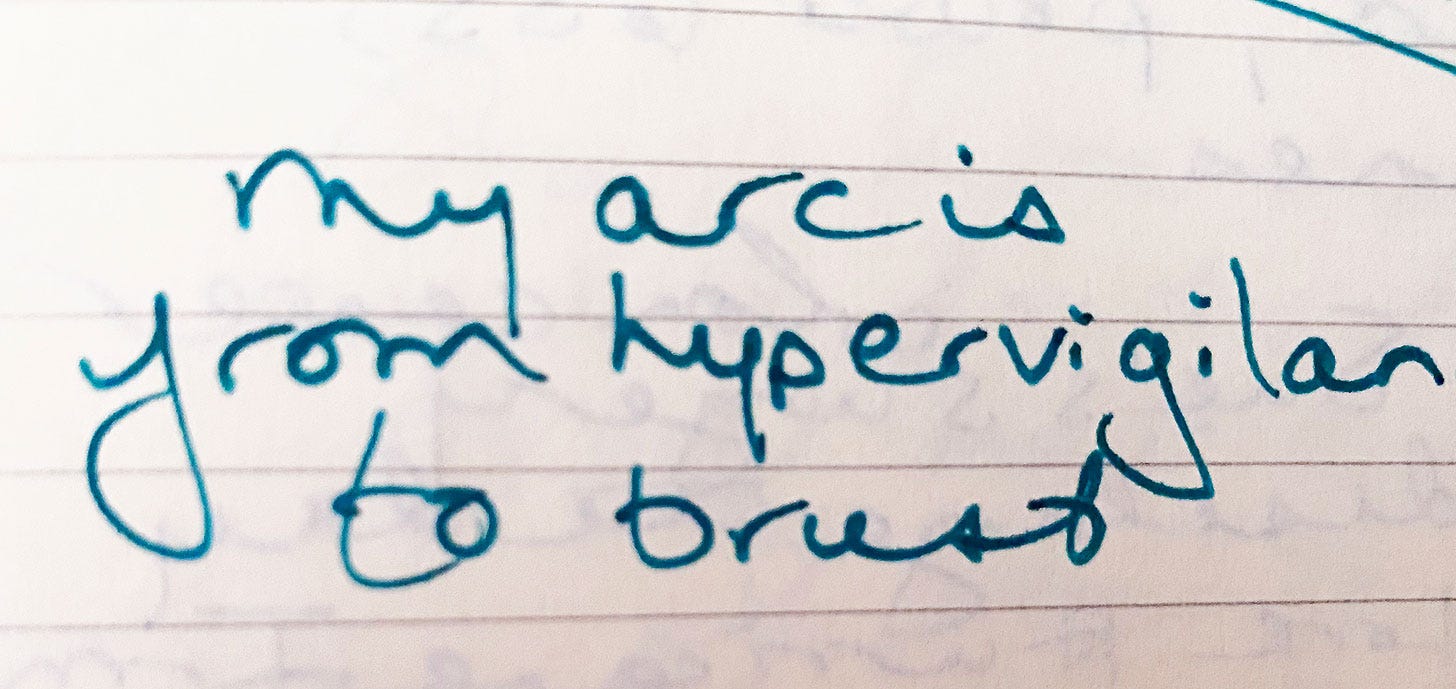 my arc is
from hypervigilan
to trust